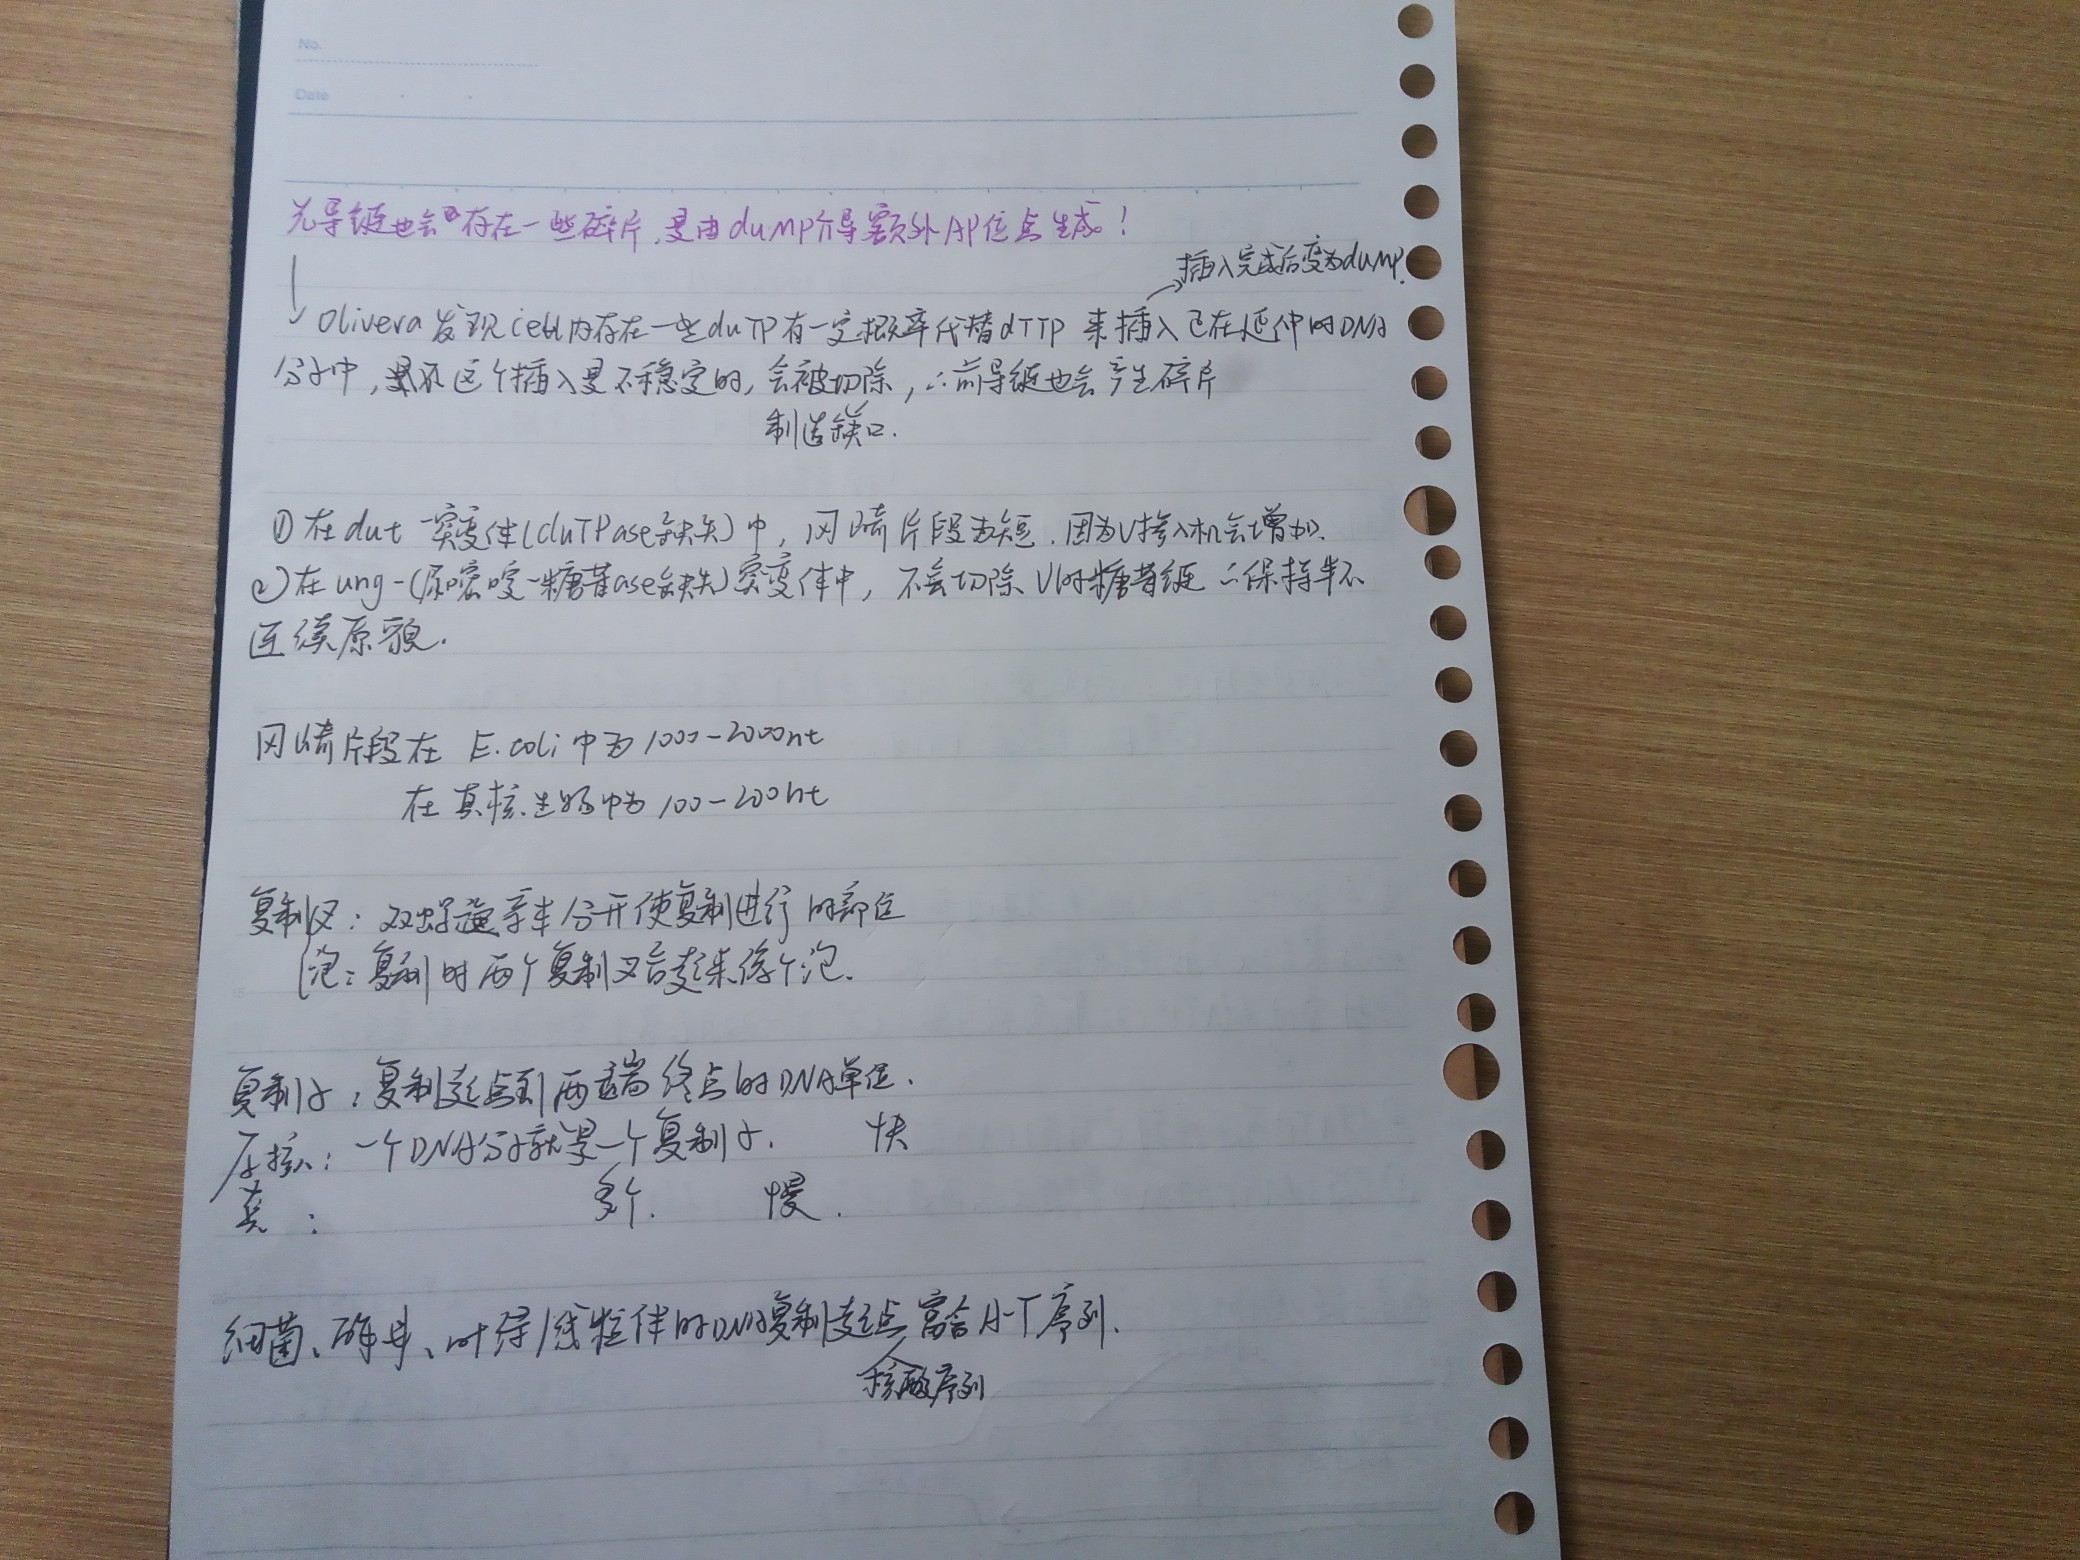 No.
Date
先导链也会存在一些碎片,是由dump介导额外AP位点生成!
插入完成后变为dump.
Olivera发现cell内存在一些duTP有一定概率代替dTTP来插入已在延伸的DNA
分子中,但这个插入是不稳定的,会被切除,∴前导链也会产生碎片
制造缺口.
① 在dut-突变体(duTPase缺失)中,冈崎片段为短.因为U掺入机会增加.
② 在ung-(尿嘧啶-糖苷ase缺失)突变体中,不会切除U的糖苷链∴保持半不
连续原貌.
冈崎片段在 E.coli中为1000-2000nt
在真核生物中为100-200nt
复制叉:双螺旋亲本分开使复制进行的部位
泡:复制时两个复制叉合起来像个泡.
复制子:复制起点到两端终点的DNA单位.
原核:一个DNA分子就是一个复制子. 快
真: 多个. 慢.
细菌、酵母、叶绿/线粒体的DNA复制起点富含A-T序列.
核酸序列